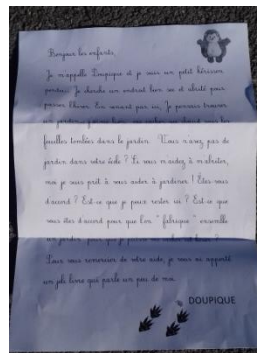 Bonjour les enfants,
Je m'appelle Doupique et je suis un petit hérisson
perdu. Je cherche un endroit bien sec et abrité pour
passer l'hiver. En venant par ici, je pensais trouver
un jardin
feuilles tombées dans le jardin. Vous n'avez pas de
jardin dans votre école ? Si vous m'aidez à m'abriter,
moi je suis prêt à vous aider à jardiner ! Êtes-vous
d'accord ? Est-ce que je peux rester ici ? Est-ce que
vous êtes d'accord pour que l'on "fabrique" ensemble
un jardin pour que je
Pour vous remercier de votre aide, je vous ai apporté
un joli livre qui parle un peu de moi.
DOUPIQUE